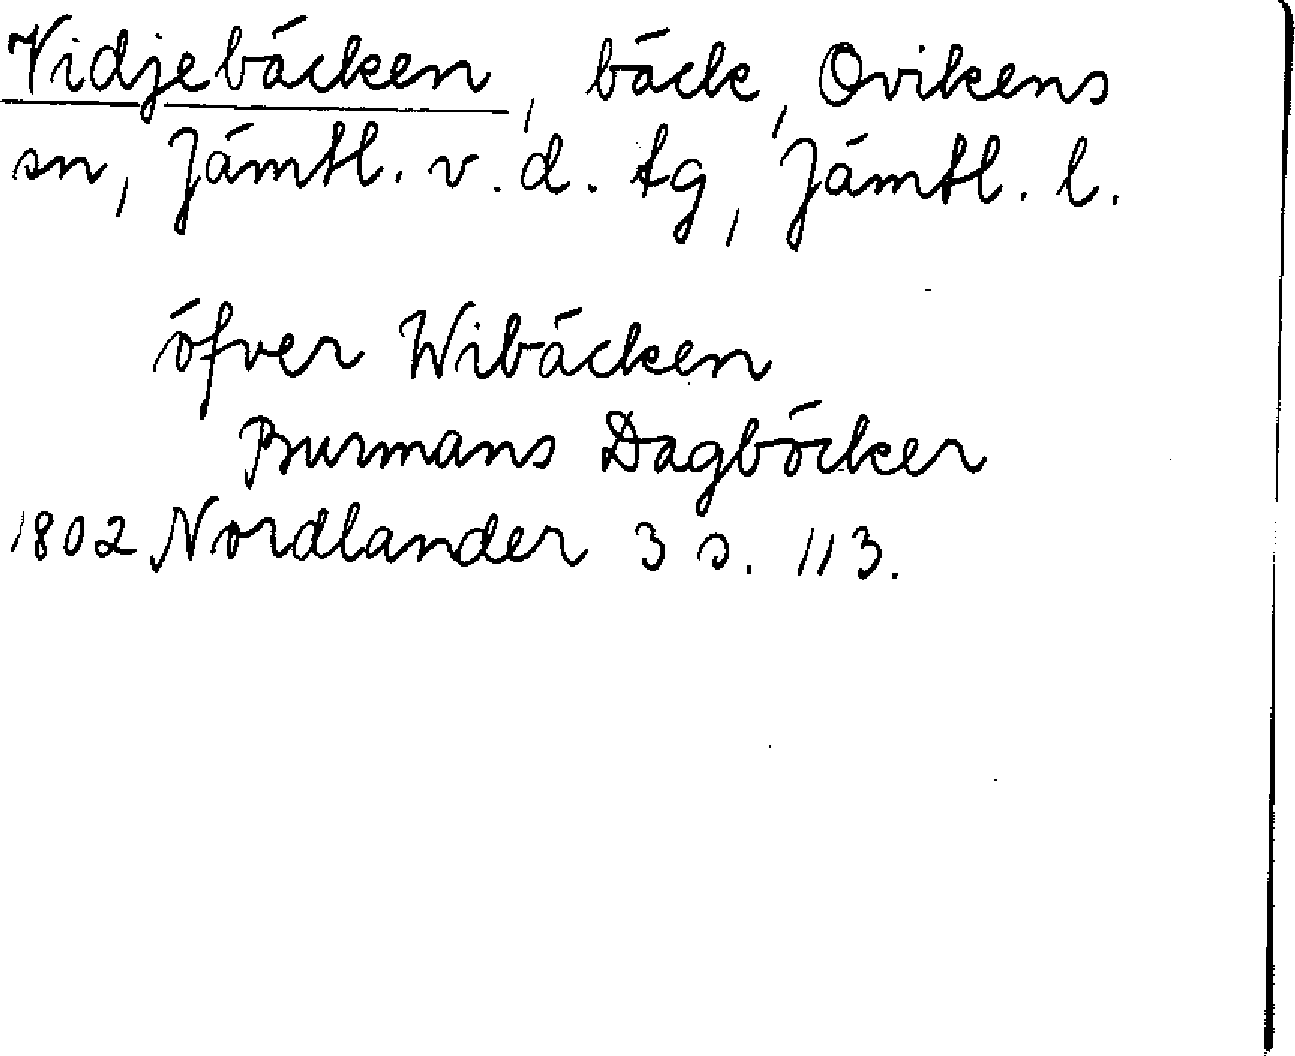 Vidjebäcken, bäck, Ovikens
sn, Jämtl. v. d. tg, Jämtl. l.
öfver Wibäcken
Burmans Dagböcker
1802 Nordlander 3 s. 113.